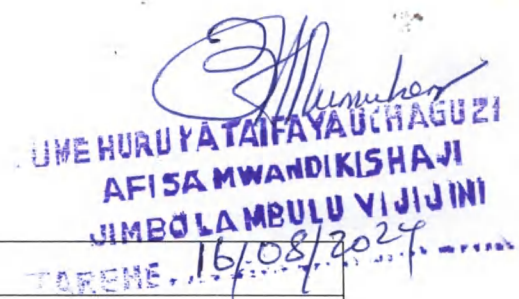 UME HURU YATAIFAYAUCHAGUZI
AFISA MWANDIKISHAJI
JIMBO LA MBULU VIJIJINI
TAREHE. 16/08/2024